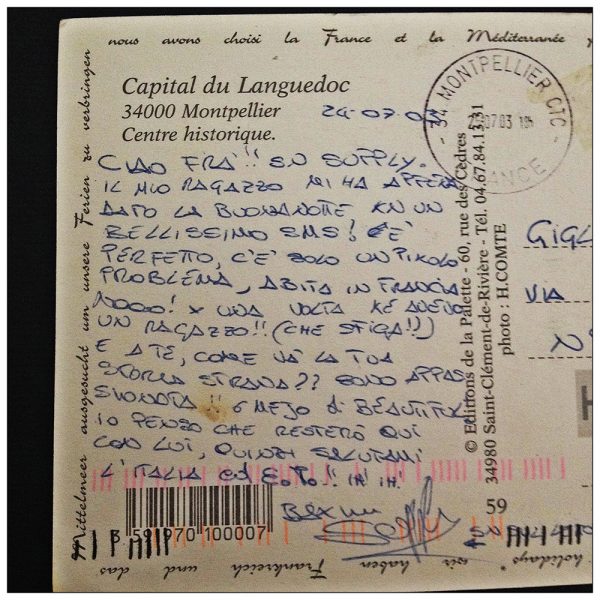 nous avons choisi la France et la Méditerranée
Capital du Languedoc
34000 Montpellier
Centre historique.
24-07-03
34 MONTPELLIER CTC
07.03
FRANCE
CIAO FRA'!! SN SUPPLY.
IL MIO RAGAZZO MI HA APPENA
DATO LA BUONANOTTE KN UN
BELLISSIMO SMS! È
PERFETTO, C'È SOLO UN PIKOLO
PROBLEMA, ABITA IN FRANCIA
NOOO! X UNA VOLTA KE AVEVO
UN RAGAZZO!! (CHE SFIGA!!)
E A TE, COME VÀ LA TUA
STORIA STRANA?? SONO APPAS
SIONATA!! È MEJO di BEAUTIFUL
IO PENZO CHE RESTERÒ QUI
CON LUI, QUINDI SALUTAMI
L'ITALIA
GIGL
VIA
N
© Editions de la Palette - 60, rue des Cèdres
34980 Saint-Clément-de-Rivière - Tél. 04.67.84.13.31
photo : H.COMTE
59
3 591970 100007
Mittelmeer ausgesucht um unsere Ferien zu verbringen
holidays" wir haben Frankreich und das